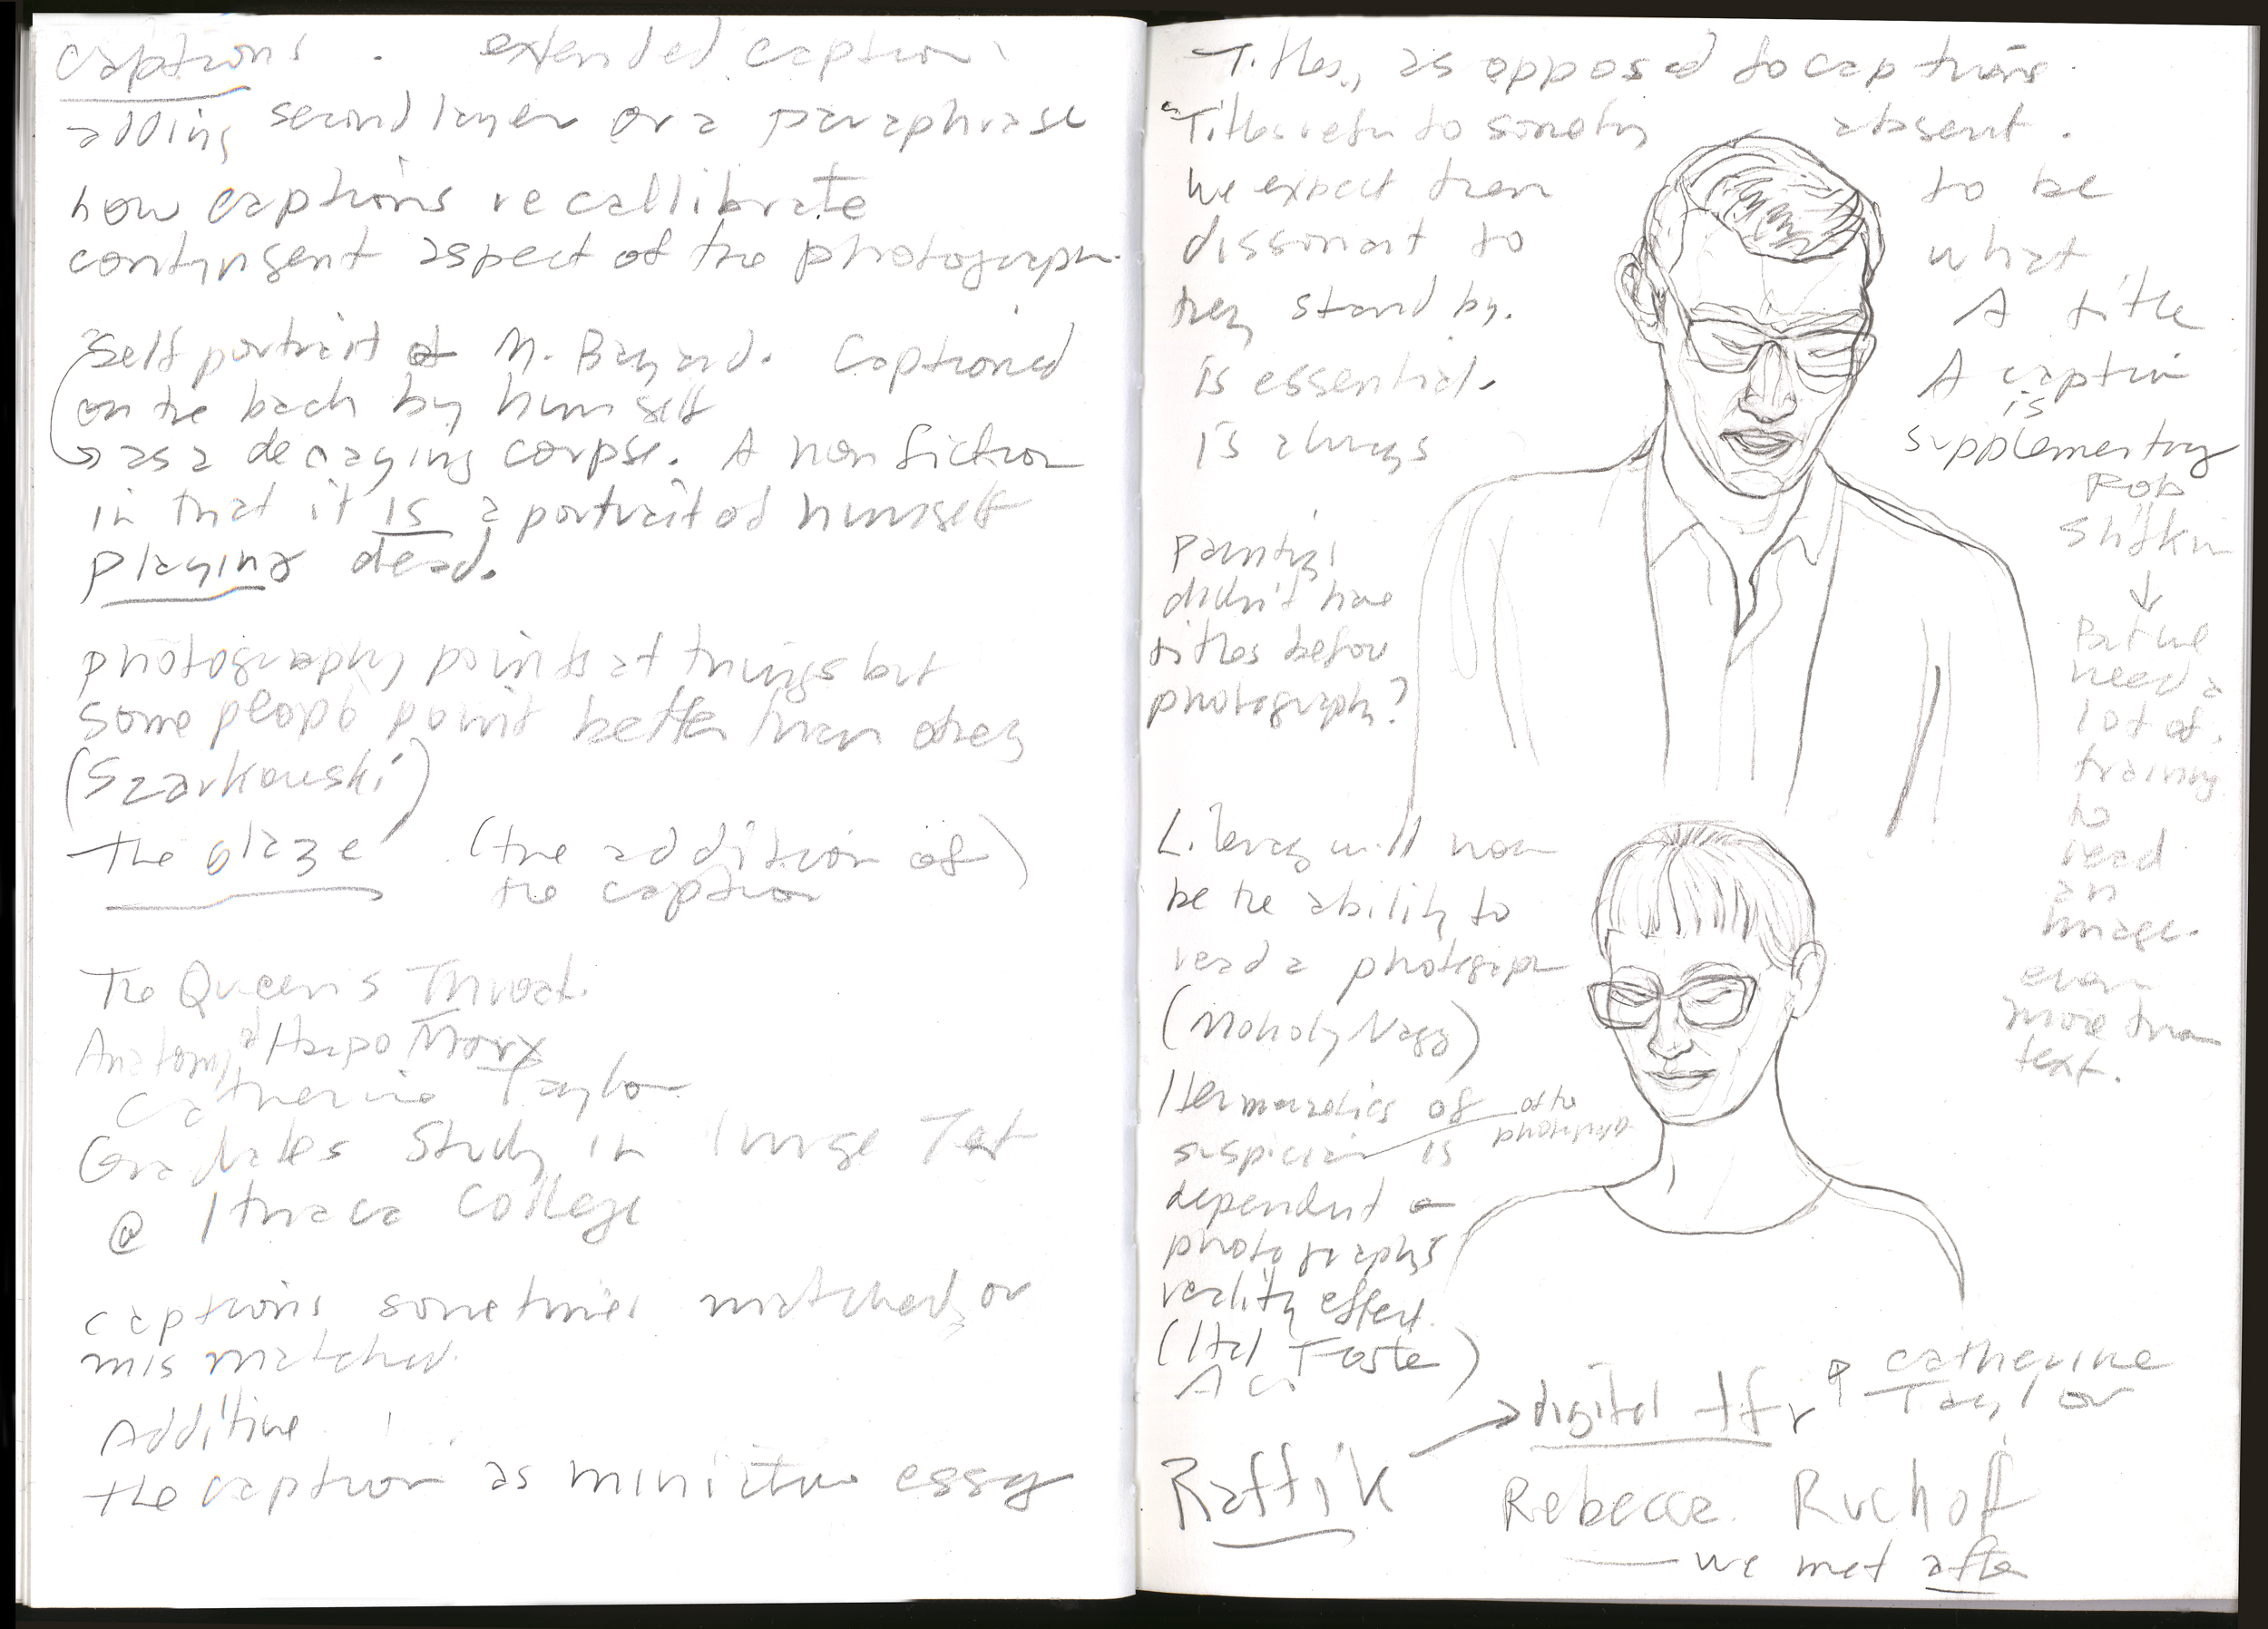 captions . extended caption.
adding second layer or a paraphrase
how captions recallibrate
contingent aspect of the photograph.
Self portrait of M. Bayard. Captioned
on the back by himself
as a decaying corpse. A non fiction
in that it is a portrait of himself
playing dead.
photography points at things but
some people point better than others
(Szarkowski)
the glaze (the addition of
the caption)
The Queen's Throat.
Anatomy of Harpo Marx
Catherine Taylor
Graduates Study in Image Text
@ Ithaca College
captions sometimes matched, or
mis matched.
Additive
the caption as miniature essay
Titles, as opposed to captions.
"Titles refer to something absent.
We expect them to be
dissonant to what
they stand by. A title
is essential. A caption
is always is
supplementary
Rob
Slifkin
But we
need a
lot of
training
to
read
an
image.
even
more than
text.
Paintings
didn't have
titles before
photography?
Literacy will now
be the ability to
read a photograph
(Moholy Nagy)
Hermeneutics of of the
suspicion is photograph
dependent on
photography's
reality effect.
(Hal Foster)
digital Catherine
Taylor
Raffik
Rebecca Ruchof
we met after